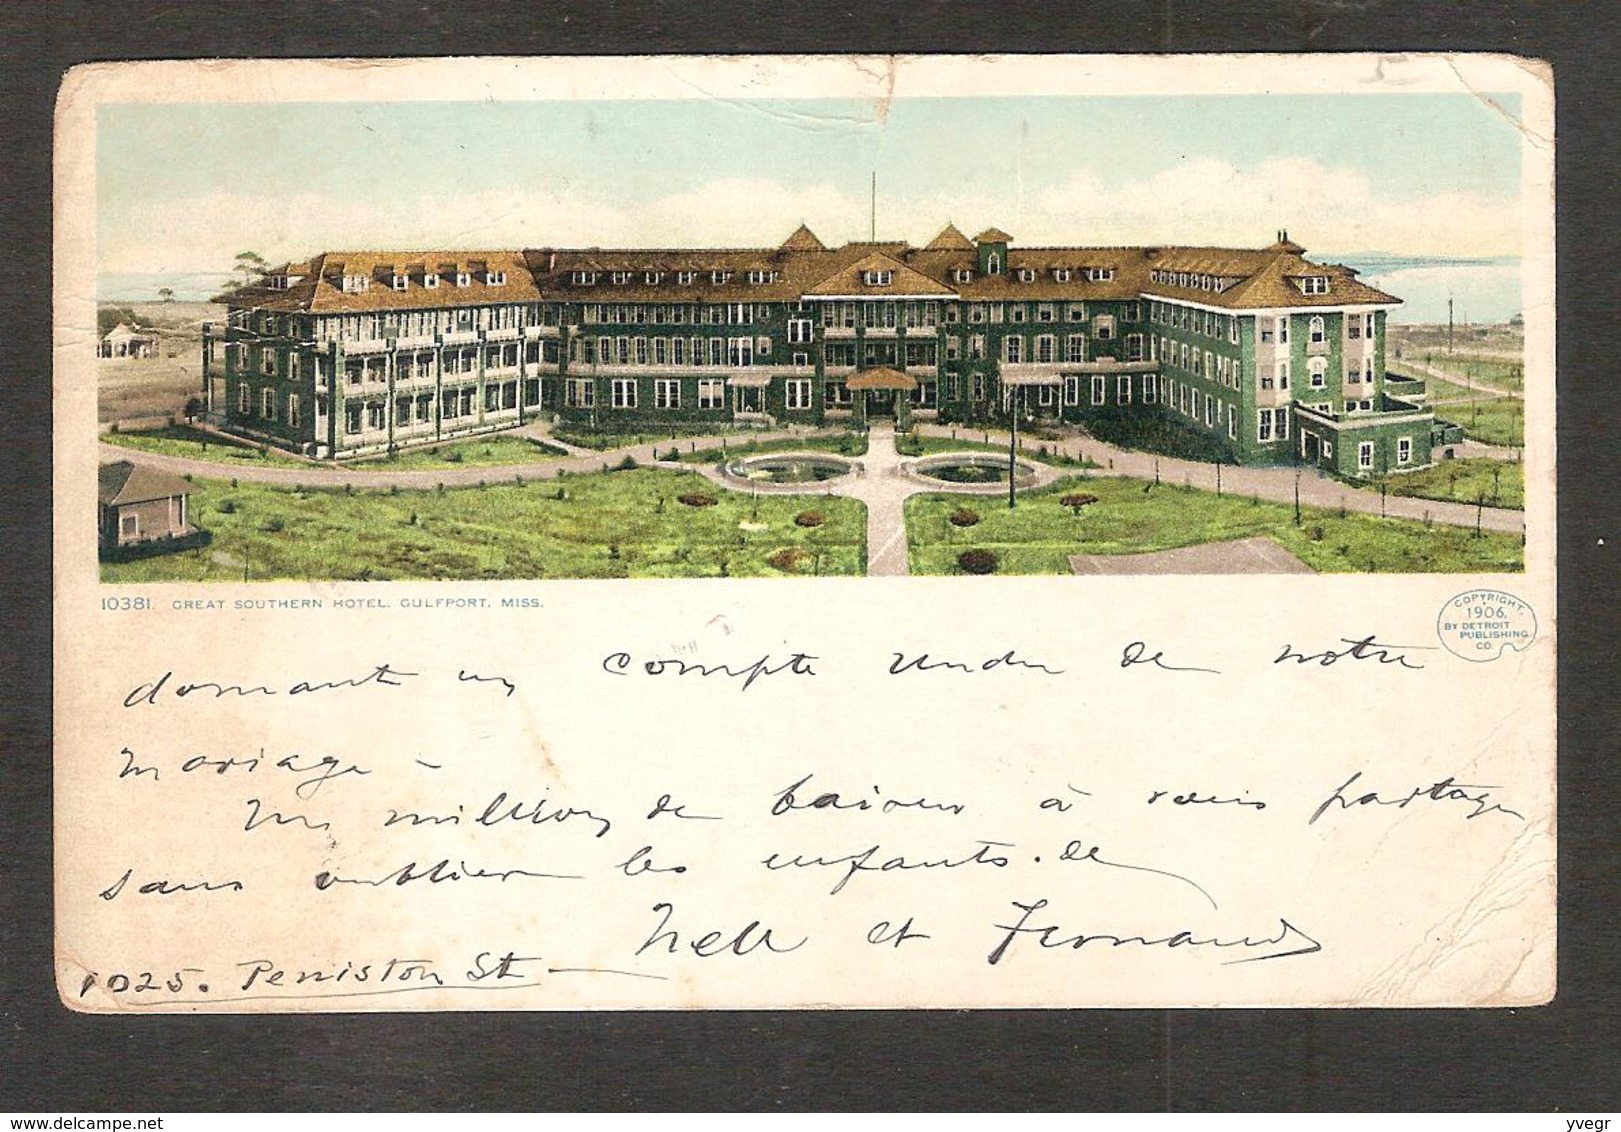 10381. GREAT SOUTHERN HOTEL, GULFPORT, MISS.
COPYRIGHT,
1906,
BY DETROIT
PUBLISHING
CO.
donnant un compte rendu de notre
mariage -
Un million de baisers à vous partager
sans oublier les enfants. de
Nell et Fernand
1025. Peniston St
delcampe.net
yvegr